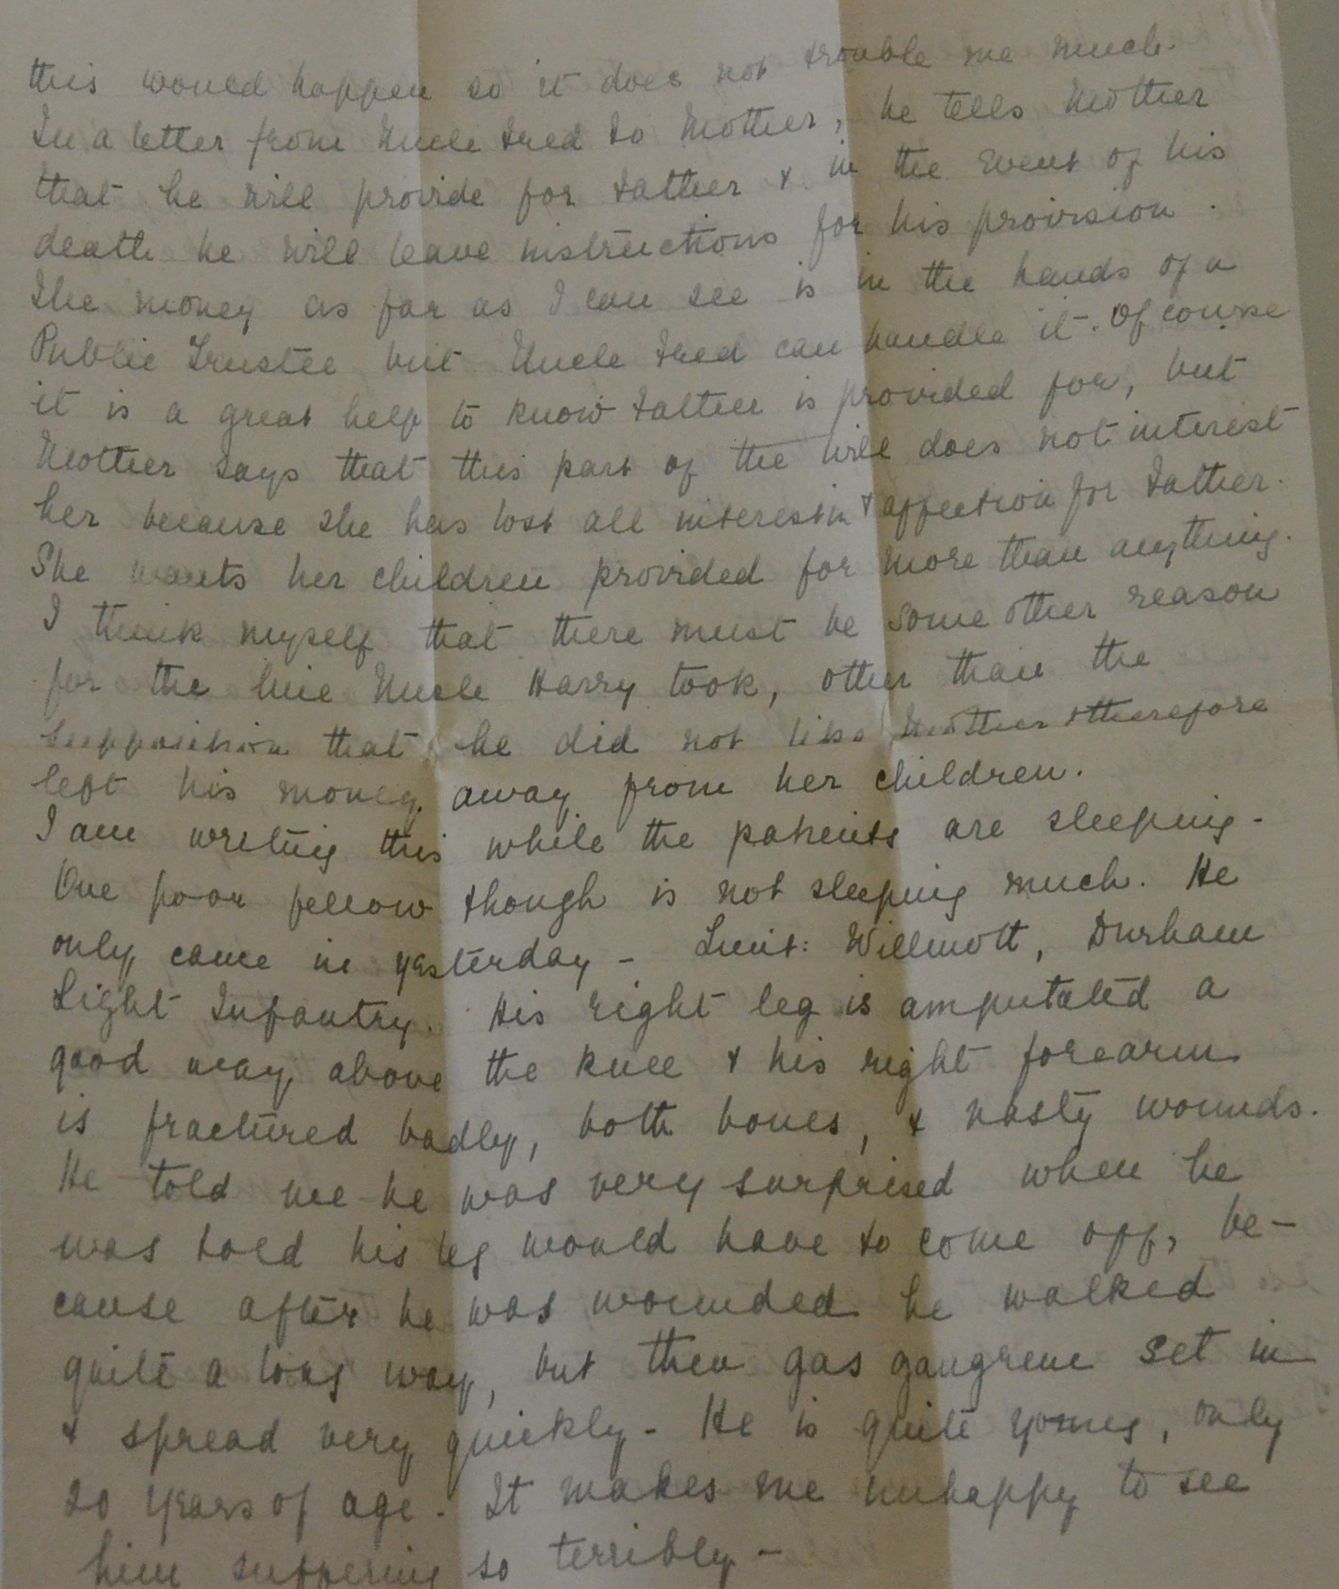 this would happen so it does not trouble me much.
In a letter from Uncle Fred to Mother, he tells Mother
that he will provide for Father & in the event of his
death he will leave instructions for his provision.
The money as far as I can see is in the hands of a
Public Trustee but Uncle Fred can handle it. Of course
it is a great help to know Father is provided for, but
Mother says that this part of the will does not interest
her because she has lost all interest in & affection for Father.
She wants her children provided for more than anything.
I think myself that there must be some other reason
for the line Uncle Harry took, other than the
supposition that he did not like Mother & therefore
left his money away from her children.
I am writing this while the patients are sleeping -
One poor fellow though is not sleeping much. He
only came in yesterday - Lieut: Willmott, Durham
Light Infantry. His right leg is amputated a
good way above the knee & his right forearm
is fractured badly, both bones, & nasty wounds.
He told me he was very surprised when he
was told his leg would have to come off, be-
cause after he was wounded he walked
quite a long way, but then gas gangrene set in
& spread very quickly - He is quite young, only
20 years of age. It makes me unhappy to see
him suffering so terribly -